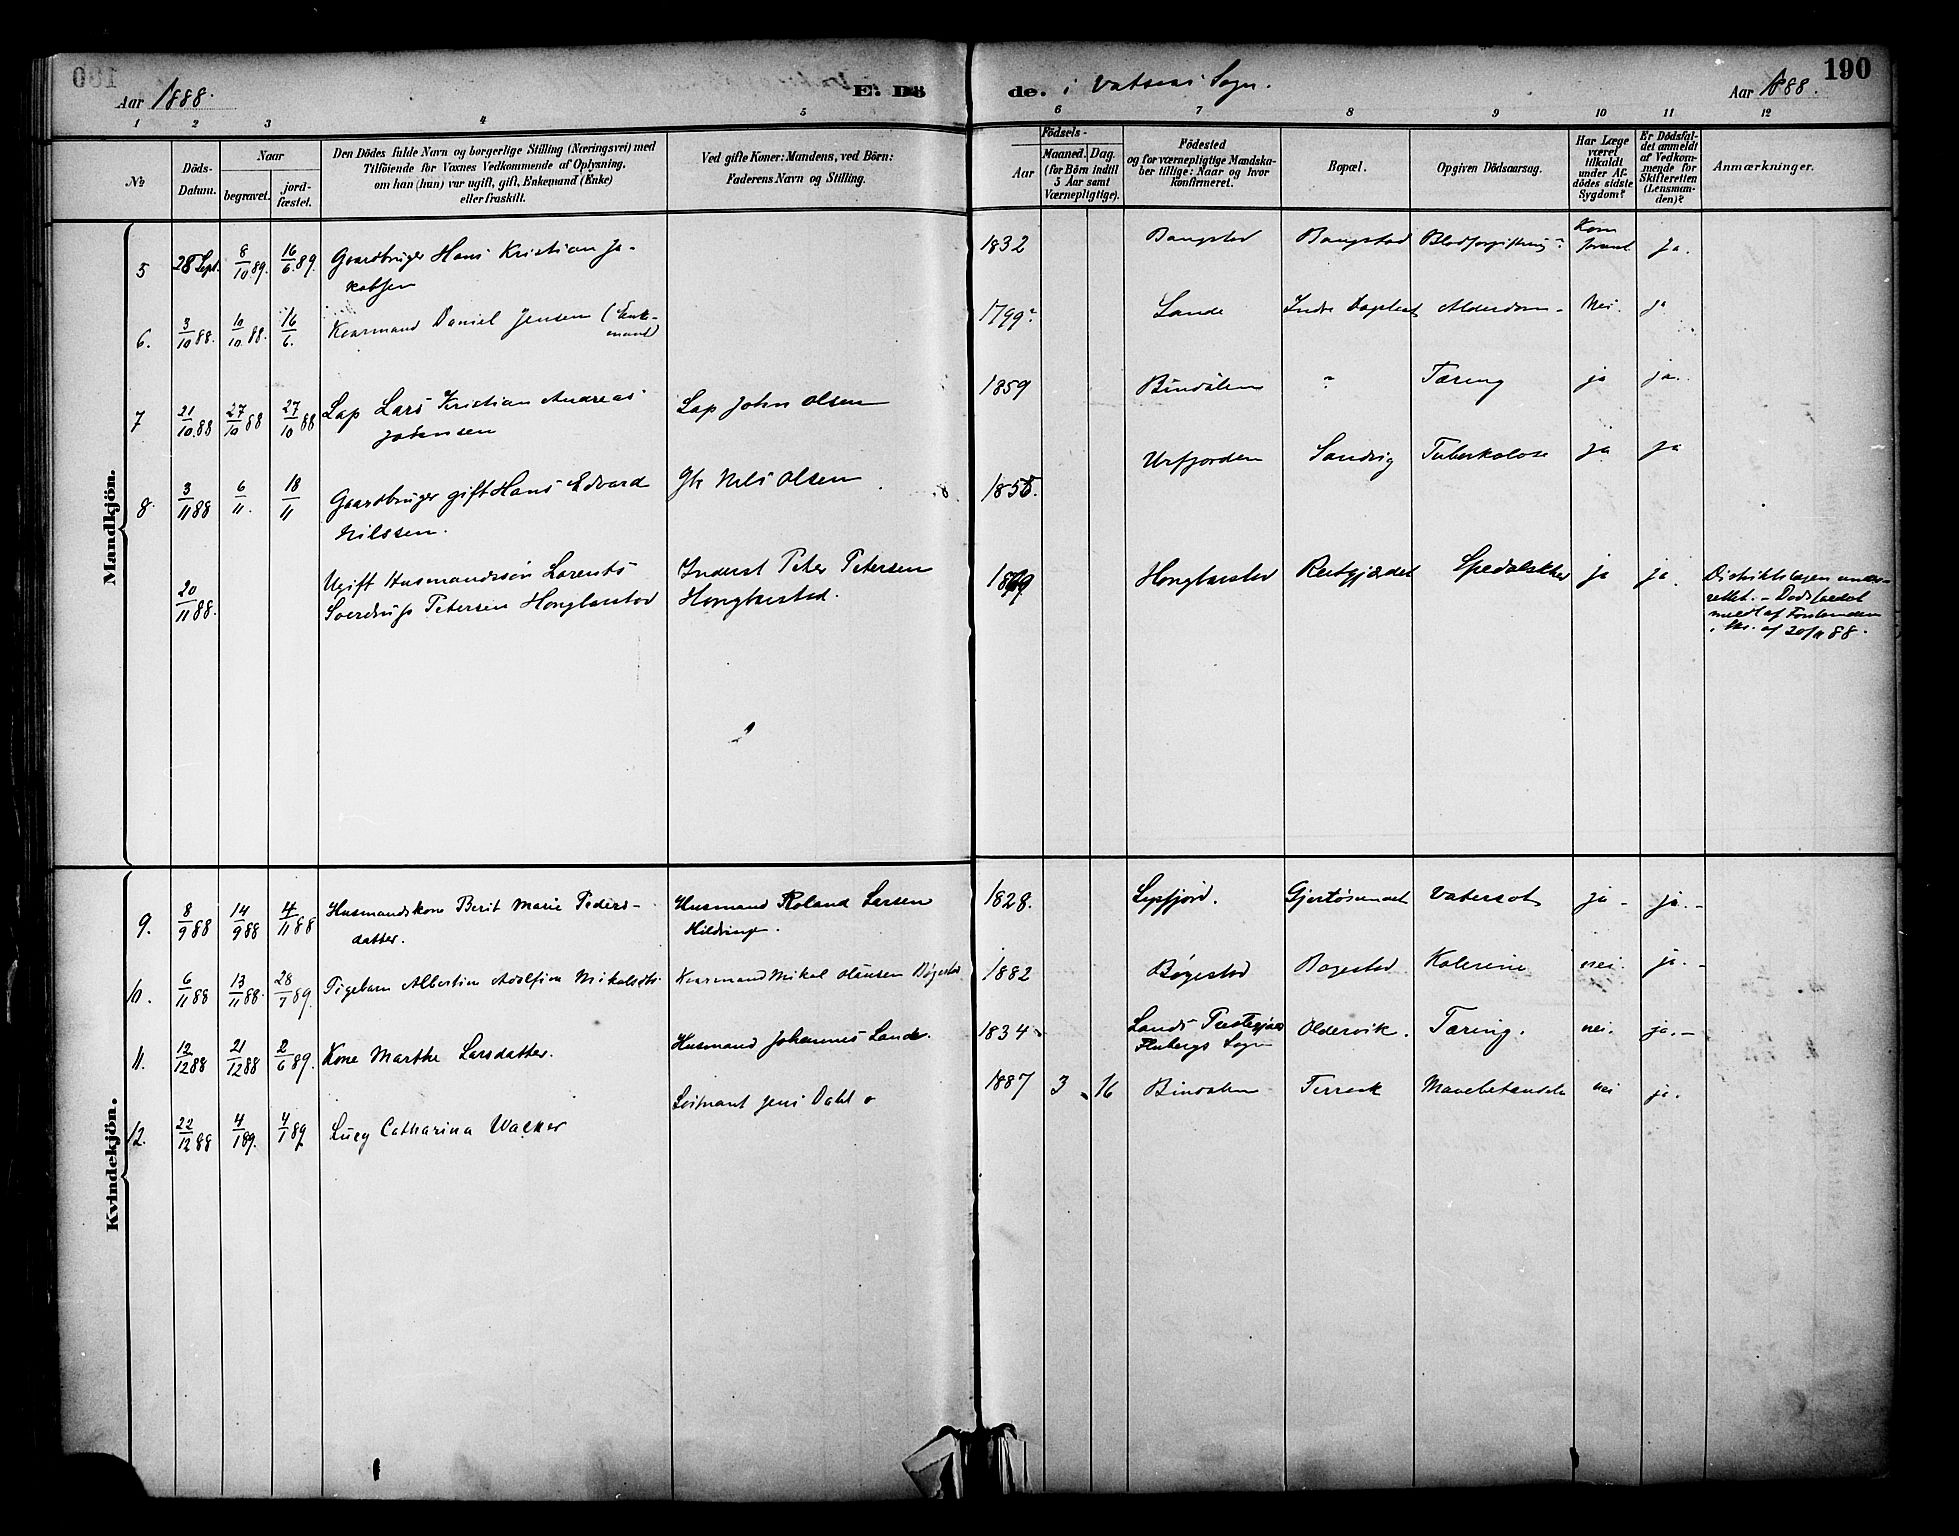 Aar 1888.
E. Dö
de. i Vatsens Sogn.
190
Aar 1888.
1 2 3 4 5 6 7 8 9 10 11 12
No
Döds-
Datum.
Naar
begravet.
jord-
fæstet.
Den Dödes fulde Navn og borgerlige Stilling (Næringsvei) med
Tilföiende for Voxnes Vedkommende af Oplysning,
om han (hun) var ugift, gift, Enkemand (Enke)
eller fraskilt.
Ved gifte Koner: Mandens, ved Börn:
Faderens Navn og Stilling.
Födsels-
Aar
Maaned. Dag.
(for Börn indtil
5 Aar samt
Værnepligtige).
Födested
og for værnepligtige Mandska-
ber tillige: Naar og hvor
konfirmeret.
Bopæl.
Opgiven Dödsaarsag.
Har Læge
været
tilkaldt
under Af-
dödes sidste
Sygdom?
Er Dödsfal-
det anmeldt
af Vedkom-
mende for
Skifteretten
(Lensman-
den)?
Anmærkninger.
Mandkjön.
5 28 Sept. 8/10 89. 16/6 89. Gaardbruger Hans Kristian Ja-
kobsen
1832 Bangstad Bangstad Blodforgiftning Kom
ja.
6. 3/10 88. 10/10 88. 16/6. Kaarmand Daniel Jensen (Enke-
mand)
1799? Lande Indre Alderdom - Nei. ja
7 21/10 88 27/10 88 27/10 88 Lap Lars Kristian Andreas
Johnsen
Lap John Olsen
1859 Bindalen Tæring ja ja.
8. 3/11 88 6/11. 18/11 Gaardbruger gift Hans Edvard
Nilssen.
Gbr Nels Olsen
1855. Urfjorden Sandvig Tuberkolose ja ja
20/11 88. Ugift Husmandssøn Lorents
Sverdrup Petersen Hongbarstad
Inderst Peter Petersen
Hongbarstad.
Hongbarstad Reitgjærdet Spedalskhed ja ja.
Distriktslægen under-
rettet. - Dødsfaldet
meldt af Forstanderen
i skr. af 20/11 88.
Kvindekjön.
9. 8/9 88 14/9 88 4/11 88 Husmandskone Berit Marie Peders-
datter.
Husmand Roland Larsen
Hildringen.
1828. Lepfjord. Gjertøsundet Vatersot ja - ja. -
10. 6/11 88 13/11 88. 28/1 89. Pigebarn Albertine Adolfine Mikalsdtr
Kaarmand Mikal Olausen Bøgestad
1882 Bøgestad Bogestad Kolerine nei. ja. -
11. 12/12 88 21/12 88 2/6 89. Kone Marthe Larsdatter.
Husmand Johannes Lande.
1834 Lands Præstegjæld
Flubergs Sogn
Oldervik. Tæring. nei. ja. -
12. 22/12 88 4/1 89. 4/1 89 Lucy Catharina Walker
Løitnant Jens Dahl
1887 3 16 Bindalen Terraak Mavebetændelse nei ja.